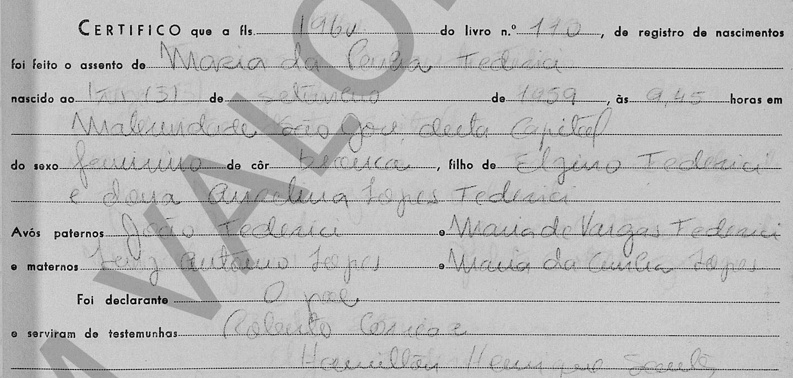 CERTIFICO que a fls. 196v do livro n.º 110, de registro de nascimentos
foi feito o assento de Maria da Penha Federici
nascido ao três (3) de setembro de 1959, às 9,45 horas em
Maternidade São José, desta Capital
do sexo feminino de côr branca, filho de Elzino Federici
e dona Angelina Lopes Federici
Avós paternos João Federici e Maria de Vargas Federici
e maternos Luiz Antonio Lopes e Maria da Cunha Lopes
Foi declarante O pai
e serviram de testemunhas Roberto Correa e
Hamilton Henrique
VALO